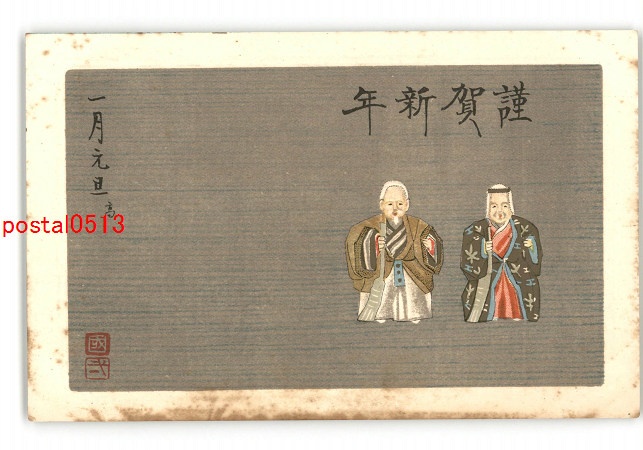 謹賀新年
一月元旦
高
postal0513